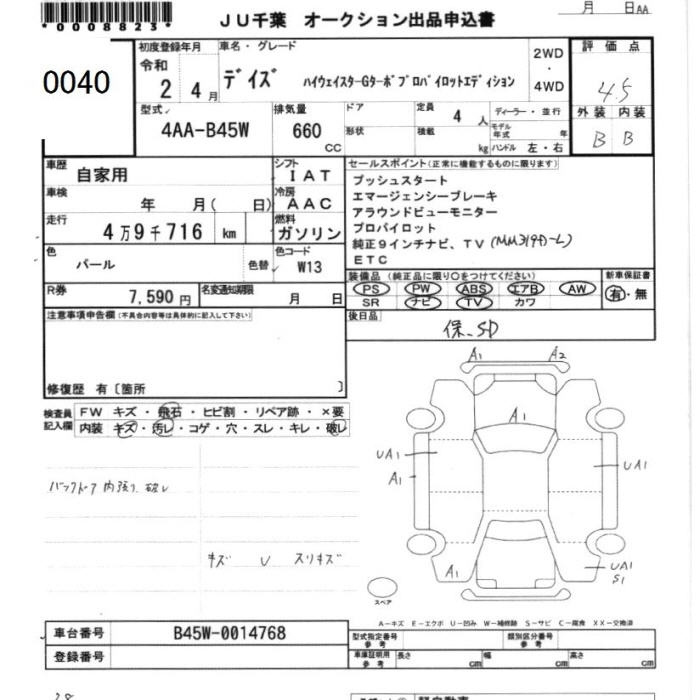 *0008823*
月 日AA
JU千葉 オークション出品申込書
0040
初度登録年月
令和
2 4月
車名・グレード
デイズ ハイウェイスターGターボプロパイロットエディション
2WD
・
4WD
評価点
4.5
型式
4AA-B45W
排気量
660
cc
ドア
形状
定員 4 人
積載 kg
ディーラー・並行
モデル年式 年
ハンドル 左・右
外装 内装
B B
車歴
自家用
シフト
IAT
車検 年 月( 日)
冷房
AAC
走行
4万9千716 km
燃料
ガソリン
色
パール
色替
色コード
W13
R券
7,590円
名変通知期限
月 日
セールスポイント(正常に機能するものに限ります)
プッシュスタート
エマージェンシーブレーキ
アラウンドビューモニター
プロパイロット
純正9インチナビ、TV(MM319D-L)
ETC
装備品(純正品に限り○をつけてください)
PS PW ABS エアB AW
SR ナビ TV カワ
新車保証書
有・無
後日品
保、SD
注意事項申告欄(不具合内容等は具体的に記入して下さい)
修復歴 有〔箇所 〕
検査員記入欄
FW キズ・飛石・ヒビ割・リペア跡・×要
内装 キズ・汚レ・コゲ・穴・スレ・キレ・破レ
バックドア内張り破レ
キズ U スリキズ
A1 A2
A1
UA1
A1
UA1
A1
UA1
S1
スペア
A-キズ E-エクボ U-凹み W-補修跡 S-サビ C-腐食 XX-交換済
車台番号 B45W-0014768
登録番号
型式指定番号
参考
類別区分番号
参考
車庫証明用
参考
長さ cm
幅 cm
高さ cm